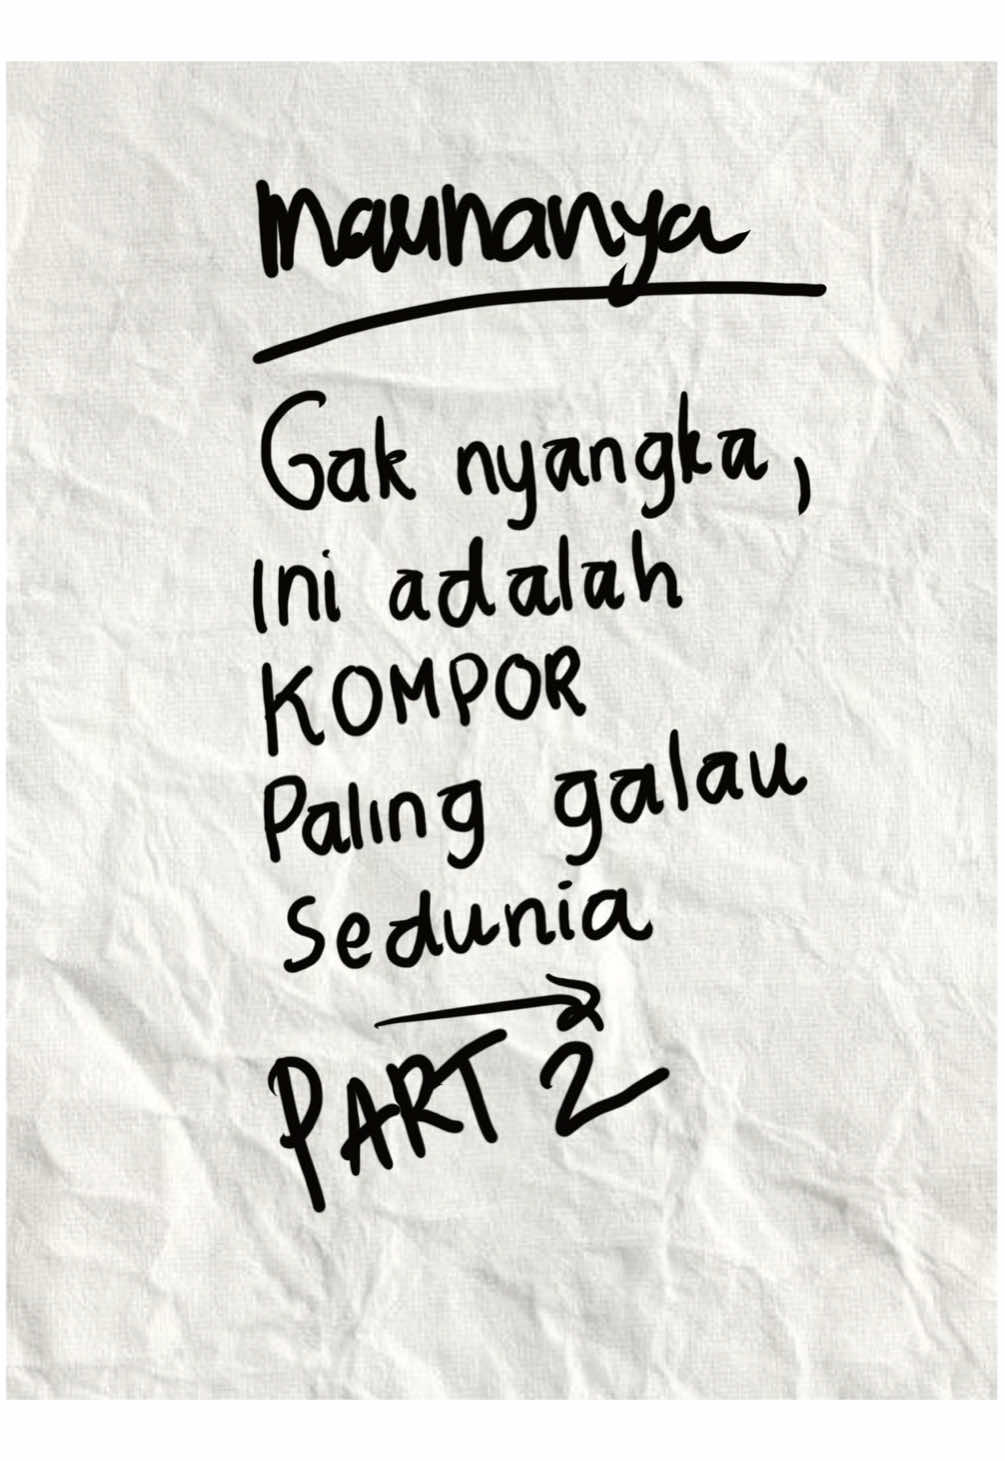 maunanya
Gak nyangka,
Ini adalah
KOMPOR
Paling galau
Sedunia
PART 2